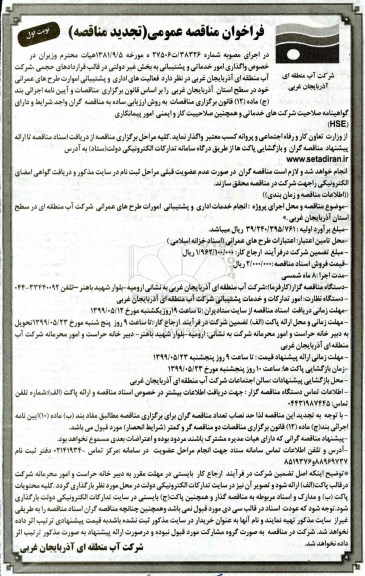 نوبت اول
فراخوان مناقصه عمومی(تجدید مناقصه)
شرکت آب منطقه ای
آذربایجان غربی
در اجرای مصوبه شماره ۳۸۳۲۶/ت۲۷۵۰۶ ه مورخه ۱۳۸۱/۹/۵هیات محترم وزیران در
خصوص واگذاری امور خدماتی و پشتیبانی به بخش غیر دولتی در قالب قراردادهای حجمی ،شرکت
آب منطقه ای آذربایجان غربی در نظر دارد فعالیت های اداری و پشتیبانی امورات طرح های عمرانی
خود در سطح استان آذربایجان غربی را بر اساس قانون برگزاری مناقصات و آیین نامه اجرائی بند
(ج) ماده (۱۲) قانون برگزاری مناقصات به روش ارزیابی ساده به مناقصه گران واجد شرایط و دارای
گواهینامه صلاحیت شرکت های خدماتی و همچنین صلاحیت کار و ایمنی امور پیمانکاری
(HSE)
از وزارت تعاون کار و رفاه اجتماعی و پروانه کسب معتبر واگذار نماید .کلیه مراحل برگزاری مناقصه از دریافت اسناد مناقصه تا ارائه
پیشنهاد مناقصه گران و بازگشایی پاکت ها از طریق درگاه سامانه تدارکات الکترونیکی دولت(ستاد) به آدرس
www.setadiran.ir
انجام خواهد شد و لازم است مناقصه گران در صورت عدم عضویت قبلی مراحل ثبت نام در سایت مذکور و دریافت گواهی امضای
الکترونیکی راجهت شرکت در مناقصه محقق سازند.
((اطلاعات مناقصه و زمان بندی))
-موضوع مناقصه و محل اجرای پروژه : انجام خدمات اداری و پشتیبانی امورات طرح های عمرانی شرکت آب منطقه ای در سطح
استان آذربایجان غربی .»
-مبلغ برآورد اولیه : ۳۹/۲۴۰/۳۹۵/۷۶۱ ریال میباشد.
-محل تامین اعتبار: اعتبارات طرح های عمرانی (اسناد خزانه اسلامی )
- مبلغ تضمین شرکت درفرآیند ارجاع کار: ۱/۹۶۲/۱۰۰/۰۰۰ ریال
-قیمت فروش اسناد مناقصه: ۲/۰۰۰/۰۰۰ ریال
-مدت اجرا :۸ ماه شمسی
-دستگاه مناقصه گزار(کارفرما):شرکت آب منطقه ای آذربایجان غربی به نشانی ارومیه-بلوار شهید باهنر –تلفن ۳۳۴۴۰۰۹۲-۰۴۴
- دستگاه نظارت: امور تدارکات و خدمات پشتیبانی شرکت آب منطقه ای آذربایجان غربی
-مهلت زمانی دریافت اسناد مناقصه از سایت ستاد ایران :تا ساعت ۱۹روزیکشنبه مورخ ۱۳۹۹/۰۵/۱۲
- مهلت زمانی و محل ارائه پاکت (الف) تضمین شرکت در فرآیند ارجاع کار :تا ساعت ۹ روز پنج شنبه مورخ ۱۳۹۹/۰۵/۲۳تحویل
به دبیر خانه حراست و امور محرمانه شرکت به نشانی: ارومیه-بلوار شهید باهنر- دبیر خانه حراست و امور محرمانه شرکت آب
منطقه ای آذربایجان غربی
- مهلت زمانی ارائه پیشنهاد قیمت : تا ساعت ۹ روز پنجشنبه ۱۳۹۹/۰۵/۲۳
-زمان بازگشایی پاکت ها: ساعت ۱۰ روز پنجشنبه مورخ ۱۳۹۹/۰۵/۲۳
- محل بازگشایی پیشنهادات :سالن اجتماعات شرکت آب منطقه ای آذربایجان غربی
- اطلاعات تماس دستگاه مناقصه گزار : جهت دریافت اطلاعات بیشتر در خصوص اسناد مناقصه و ارائه پاکت (الف):شماره تلفن
تماس: ۰۴۴۳۱۹۸۷۴۴۵
- با توجه به تجدید این مناقصه لذا حد نصاب تعداد مناقصه گران برای برگزاری مناقصه مطابق مفاد بند (ب) ماده (۱۰)ایین نامه
اجرائی بند(ج) ماده (۱۲) قانون برگزاری مناقصات دو مناقصه گر و کمتر (شرایط انحصار) مورد قبول می باشد.
-پیشنهاد مناقصه گرانی که دارای هیات مدیره مشترک باشند مردود بوده و اعتراضات بعدی مسموع نخواهد بود.
-آدرس و تلفن اطلاعات تماس سامانه ستاد جهت انجام مراحل عضویت در سامانه :مرکز تماس ۴۱۹۳۴-۰۲۱ دفتر ثبت نام
۸۸۹۶۹۷۳۷و۸۵۱۹۳۷۶۸
*توضیح اینکه اصل تضمین شرکت در فرآیند ارجاع کار بایستی در مهلت مقرر به دبیر خانه حراست و امور محرمانه شرکت
درقالب پاکت(الف) ارائه شود و تصویر آن نیز در سایت تدارکات الکترونیکی دولت در محل مورد نظر بارگذاری گردد .کلیه محتویات
پاکت (ب) و مدارک و اسناد مربوطه به مناقصه گذار و همچنین پاکت(ج) بایستی در سایت تدارکات الکترونیکی دولت بارگذاری
شود.توجه شود که عودت اسناد در قالب سی دی مورد قبول نمی باشد وهمچنین چنانچه مناقصه گران اسناد مناقصه را به طریقی
غیراز سایت مذکور تهیه نمایند و نام آنها به عنوان خریدار در سایت مذکور ثبت نشده باشدبه قیمت پیشنهادی ترتیب اثر داده
نخواهد شد. شرکت در مناقصه به صورت گروه مشارکت مورد قبول نبوده و درصورت ارائه پیشنهاد به صورت مذکور ترتیب اثر
داده نخواهد شد.
شرکت آب منطقه ای آذربایجان غربی